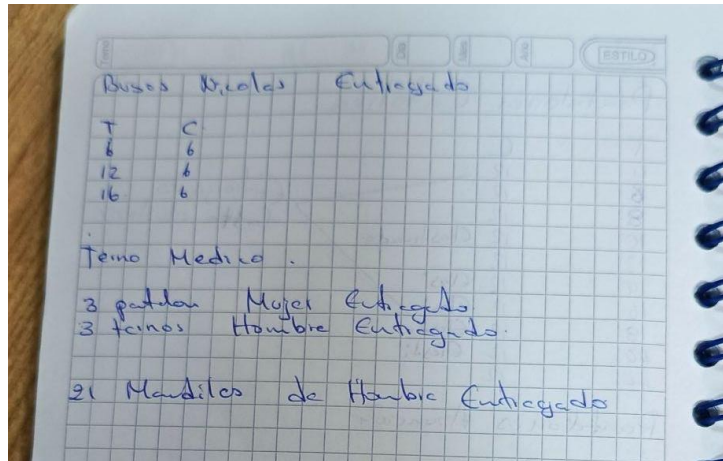 Tema Día Mes Año ESTILO
Busos Nicolas Entregado
T C
6 6
12 6
16 6
Terno Medico.
3 Mujer Entregado
3 ternos Hombre Entregado.
21 Mandiles de Hombre Entregado